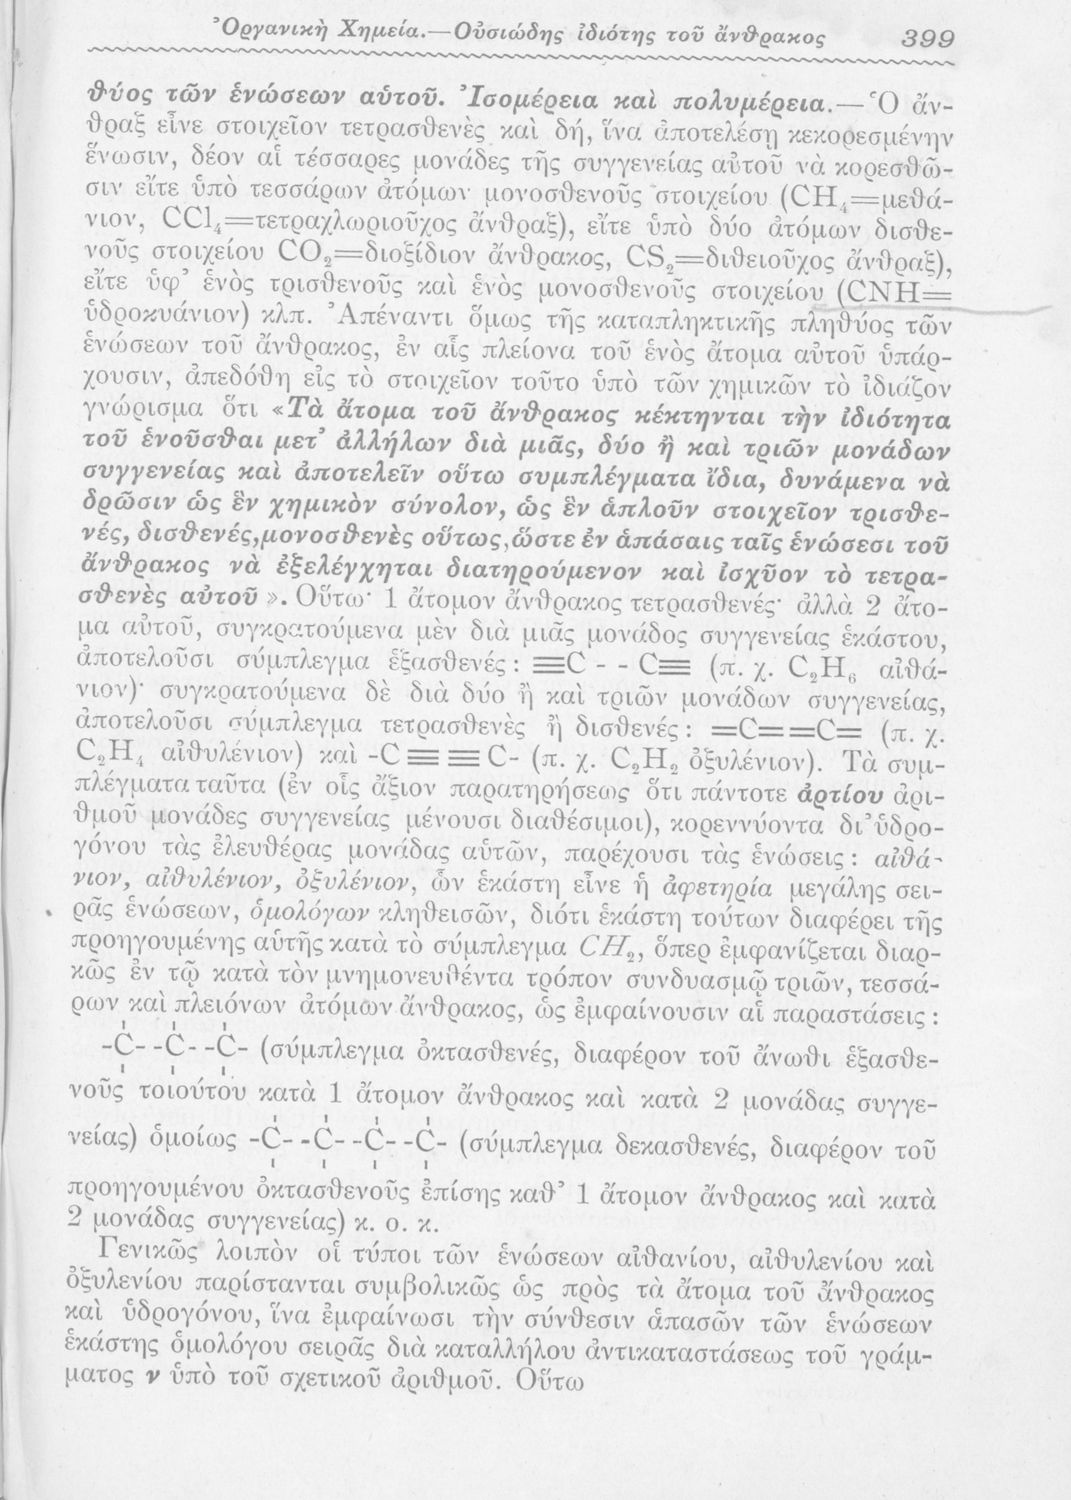 Ὀργανικὴ Χημεία.—Οὐσιώδης ἰδιότης τοῦ ἄνθρακος 399
θύος τῶν ἑνώσεων αὐτοῦ. Ἰσομέρεια καὶ πολυμέρεια.—Ὁ ἄν-
θραξ εἶνε στοιχεῖον τετρασθενὲς καὶ δή, ἵνα ἀποτελέσῃ κεκορεσμένην
ἕνωσιν, δέον αἱ τέσσαρες μονάδες τῆς συγγενείας αὐτοῦ νὰ κορεσθῶ-
σιν εἴτε ὑπὸ τεσσάρων ἀτόμων μονοσθενοῦς στοιχείου (CH₄=μεθά-
νιον, CCl₄=τετραχλωριοῦχος ἄνθραξ), εἴτε ὑπὸ δύο ἀτόμων δισθε-
νοῦς στοιχείου CO₂=διοξίδιον ἄνθρακος, CS₂=διθειοῦχος ἄνθραξ),
εἴτε ὑφ’ ἑνὸς τρισθενοῦς καὶ ἑνὸς μονοσθενοῦς στοιχείου (CNH=
ὑδροκυάνιον) κλπ. Ἀπέναντι ὅμως τῆς καταπληκτικῆς πληθύος τῶν
ἑνώσεων τοῦ ἄνθρακος, ἐν αἷς πλείονα τοῦ ἑνὸς ἄτομα αὐτοῦ ὑπάρ-
χουσιν, ἀπεδόθη εἰς τὸ στοιχεῖον τοῦτο ὑπὸ τῶν χημικῶν τὸ ἰδιάζον
γνώρισμα ὅτι «Τὰ ἄτομα τοῦ ἄνθρακος κέκτηνται τὴν ἰδιότητα
τοῦ ἑνοῦσθαι μετ’ ἀλλήλων διὰ μιᾶς, δύο ἢ καὶ τριῶν μονάδων
συγγενείας καὶ ἀποτελεῖν οὕτω συμπλέγματα ἴδια, δυνάμενα νὰ
δρῶσιν ὡς ἓν χημικὸν σύνολον, ὡς ἓν ἁπλοῦν στοιχεῖον τρισθε-
νές, δισθενές, μονοσθενὲς οὕτως, ὥστε ἐν ἁπάσαις ταῖς ἑνώσεσι τοῦ
ἄνθρακος νὰ ἐξελέγχηται διατηρούμενον καὶ ἰσχῦον τὸ τετρα-
σθενὲς αὐτοῦ». Οὕτω· 1 ἄτομον ἄνθρακος τετρασθενές· ἀλλὰ 2 ἄτο-
μα αὐτοῦ, συγκρατούμενα μὲν διὰ μιᾶς μονάδος συγγενείας ἑκάστου,
ἀποτελοῦσι σύμπλεγμα ἑξασθενές: ≡C - - C≡ (π. χ. C₂H₆ αἰθά-
νιον)· συγκρατούμενα δὲ διὰ δύο ἢ καὶ τριῶν μονάδων συγγενείας,
ἀποτελοῦσι σύμπλεγμα τετρασθενὲς ἢ δισθενές: =C==C= (π. χ.
C₂H₄ αἰθυλένιον) καὶ -C≡≡C- (π. χ. C₂H₂ ὀξυλένιον). Τὰ συμ-
πλέγματα ταῦτα (ἐν οἷς ἄξιον παρατηρήσεως ὅτι πάντοτε ἀρτίου ἀρι-
θμοῦ μονάδες συγγενείας μένουσι διαθέσιμοι), κορεννύοντα δι’ ὑδρο-
γόνου τὰς ἐλευθέρας μονάδας αὐτῶν, παρέχουσι τὰς ἑνώσεις: αἰθά-
νιον, αἰθυλένιον, ὀξυλένιον, ὧν ἑκάστη εἶνε ἡ ἀφετηρία μεγάλης σει-
ρᾶς ἑνώσεων, ὁμολόγων κληθεισῶν, διότι ἑκάστη τούτων διαφέρει τῆς
προηγουμένης αὐτῆς κατὰ τὸ σύμπλεγμα CH₂, ὅπερ ἐμφανίζεται διαρ-
κῶς ἐν τῷ κατὰ τὸν μνημονευθέντα τρόπον συνδυασμῷ τριῶν, τεσσά-
ρων καὶ πλειόνων ἀτόμων ἄνθρακος, ὡς ἐμφαίνουσιν αἱ παραστάσεις:
-C- -C- -C- (σύμπλεγμα ὀκτασθενές, διαφέρον τοῦ ἄνωθι ἑξασθε-
νοῦς τοιούτου κατὰ 1 ἄτομον ἄνθρακος καὶ κατὰ 2 μονάδας συγγε-
νείας) ὁμοίως -C- -C- -C- -C- (σύμπλεγμα δεκασθενές, διαφέρον τοῦ
προηγουμένου ὀκτασθενοῦς ἐπίσης καθ’ 1 ἄτομον ἄνθρακος καὶ κατὰ
2 μονάδας συγγενείας) κ. ο. κ.
Γενικῶς λοιπὸν οἱ τύποι τῶν ἑνώσεων αἰθανίου, αἰθυλενίου καὶ
ὀξυλενίου παρίστανται συμβολικῶς ὡς πρὸς τὰ ἄτομα τοῦ ἄνθρακος
καὶ ὑδρογόνου, ἵνα ἐμφαίνωσι τὴν σύνθεσιν ἁπασῶν τῶν ἑνώσεων
ἑκάστης ὁμολόγου σειρᾶς διὰ καταλλήλου ἀντικαταστάσεως τοῦ γράμ-
ματος ν ὑπὸ τοῦ σχετικοῦ ἀριθμοῦ. Οὕτω